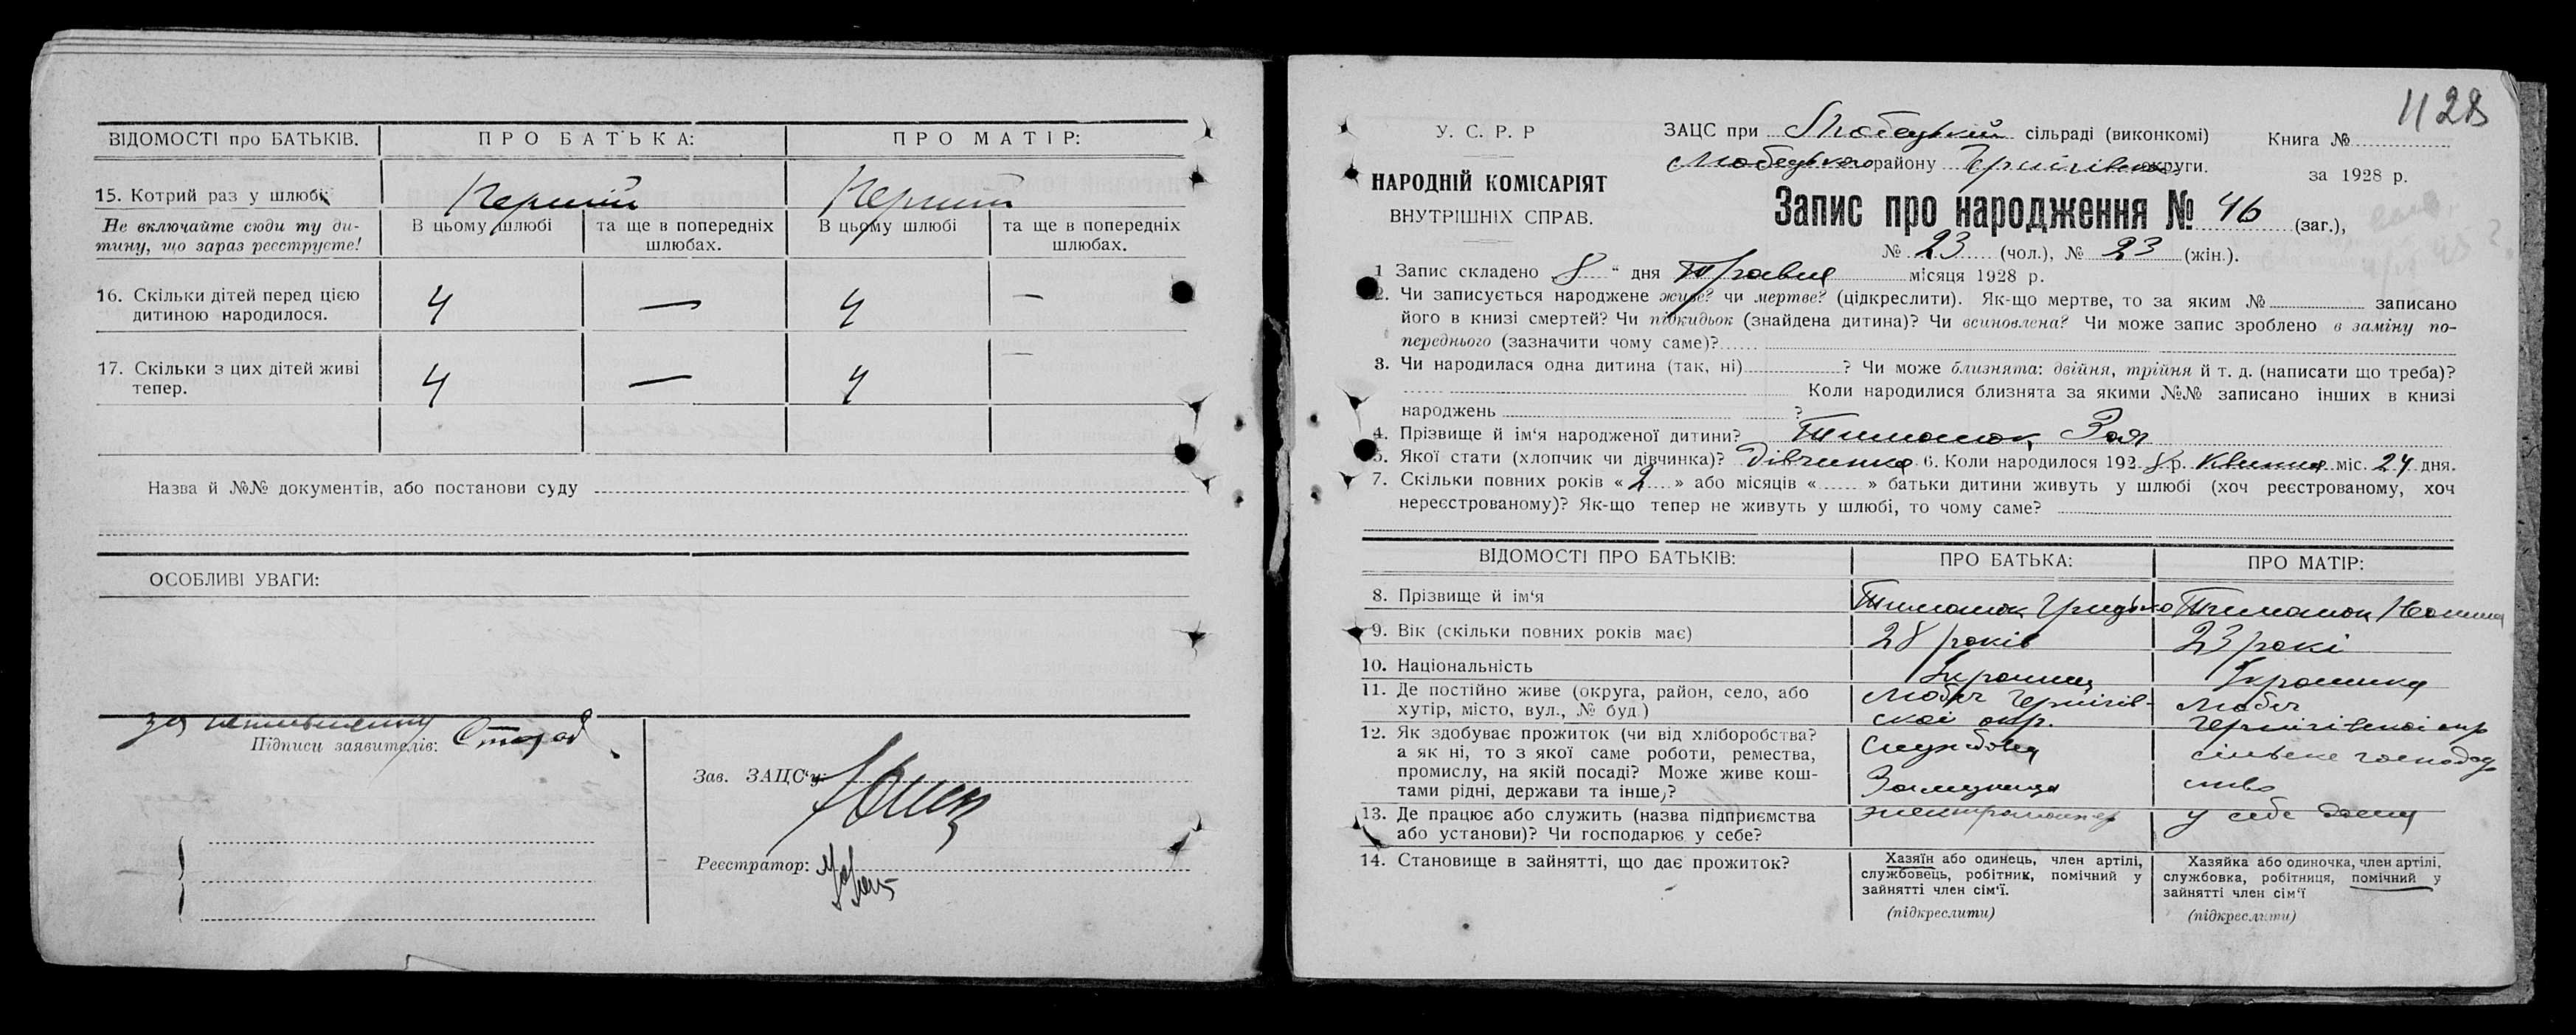 ВІДОМОСТІ про БАТЬКІВ. ПРО БАТЬКА: ПРО МАТІР:
15. Котрий раз у шлюбі: Перший Перший
Не включайте сюди ту ди- В цьому шлюбі та ще в попередніх В цьому шлюбі та ще в попередніх
тину, що зараз реєструєте! шлюбах. шлюбах.
16. Скільки дітей перед цією 4 — 4 —
дитиною народилося.
17. Скільки з цих дітей живі 4 — 4 —
тепер.
Назва й №№ документів, або постанови суду
ОСОБЛИВІ УВАГИ:
за
Підписи заявителів:
Зав. ЗАЦС'у:
Реєстратор:
1128
У. С. Р. Р
НАРОДНІЙ КОМІСАРІЯТ
ВНУТРІШНІХ СПРАВ.
ЗАЦС при Любецькій сільраді (виконкомі)
Любецького району Чернігівськ. округи.
Книга №
за 1928 р.
Запис про народження № 46 (заг.),
№ 23 (чол.), № 23 (жін.).
1 Запис складено 8 " дня Травня місяця 1928 р.
2. Чи записується народжене живе? чи мертве? (цідкреслити). Як-що мертве, то за яким № записано
його в книзі смертей? Чи підкидьок (знайдена дитина)? Чи всиновлена? Чи може запис зроблено в заміну по-
переднього (зазначити чому саме)?
3. Чи народилася одна дитина (так, ні) ? Чи може близнята: двійня, трійня й т. д. (написати що треба)?
Коли народилися близнята за якими №№ записано інших в книзі
народжень ?
4. Прізвище й ім'я народженої дитини? Тимошок Зоя
5. Якої стати (хлопчик чи дівчинка)? Дівчинка 6. Коли народилося 192 8 р. Квітня міс. 24 дня.
7. Скільки повних років « 2 » або місяців « » батьки дитини живуть у шлюбі (хоч реєстрованому, хоч
нереєстрованому)? Як-що тепер не живуть у шлюбі, то чому саме?
ВІДОМОСТІ ПРО БАТЬКІВ: ПРО БАТЬКА: ПРО МАТІР:
8. Прізвище й ім'я Тимошок Грицько Тимошок
9. Вік (скільки повних років має) 28 років 23 рокі
10. Національність Українец Українка
11. Де постійно живе (округа, район, село, або Любеч Чернігів- Любеч
хутір, місто, вул., № буд.) скоі окр. Чернігівскоі окр
12. Як здобуває прожиток (чи від хліборобства? Службовец сільське господар
а як ні, то з якої саме роботи, ремества,
промислу, на якій посаді? Може живе кош-
тами рідні, держави та інше,? ство
13. Де працює або служить (назва підприємства у себе дома
або установи)? Чи господарює у себе?
14. Становище в зайнятті, що дає прожиток? Хазяїн або одинець, член артілі, Хазяйка або одиночка, член артілі,
службовець, робітник, помічний у службовка, робітниця, помічний у
зайнятті член сім'ї. зайнятті член сім'ї
(підкреслити) (підкреслити)